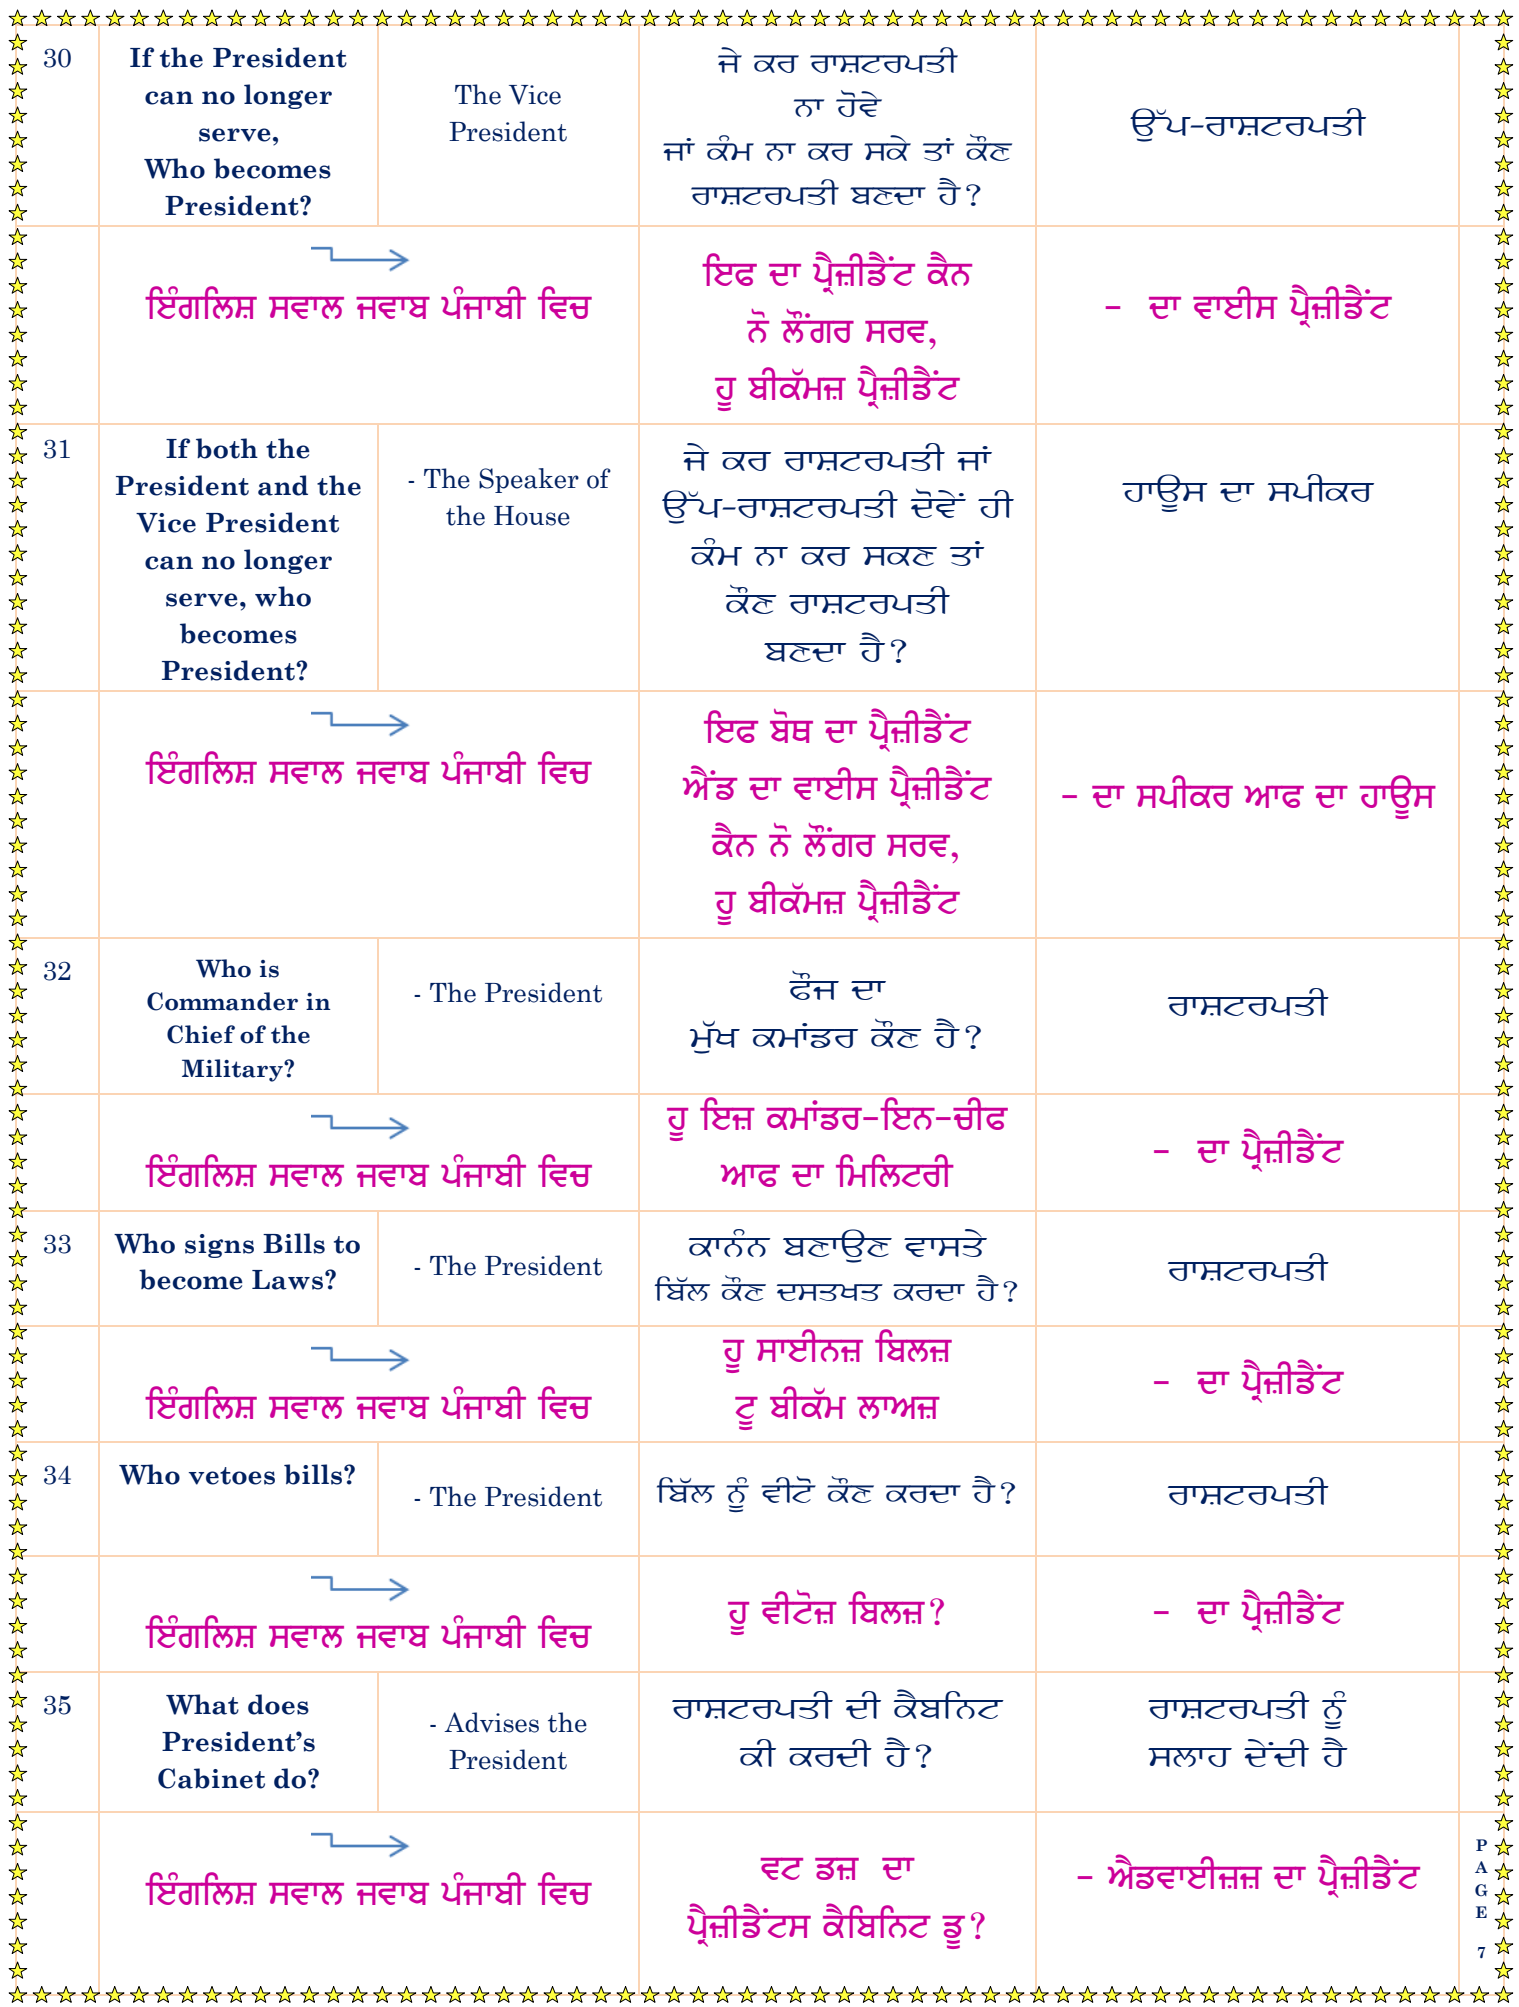 30
If the President
can no longer
serve,
Who becomes
President?
The Vice
President
ਜੇ ਕਰ ਰਾਸ਼ਟਰਪਤੀ
ਨਾ ਹੋਵੇ
ਜਾਂ ਕੰਮ ਨਾ ਕਰ ਸਕੇ ਤਾਂ ਕੌਣ
ਰਾਸ਼ਟਰਪਤੀ ਬਣਦਾ ਹੈ?
ਉੱਪ-ਰਾਸ਼ਟਰਪਤੀ
ਇੰਗਲਿਸ਼ ਸਵਾਲ ਜਵਾਬ ਪੰਜਾਬੀ ਵਿਚ
ਇਫ ਦਾ ਪ੍ਰੈਜ਼ੀਡੈਂਟ ਕੈਨ
ਨੋ ਲੌਂਗਰ ਸਰਵ,
ਹੂ ਬੀਕੱਮਜ਼ ਪ੍ਰੈਜ਼ੀਡੈਂਟ
- ਦਾ ਵਾਈਸ ਪ੍ਰੈਜ਼ੀਡੈਂਟ
31
If both the
President and the
Vice President
can no longer
serve, who
becomes
President?
- The Speaker of
the House
ਜੇ ਕਰ ਰਾਸ਼ਟਰਪਤੀ ਜਾਂ
ਉੱਪ-ਰਾਸ਼ਟਰਪਤੀ ਦੋਵੇਂ ਹੀ
ਕੰਮ ਨਾ ਕਰ ਸਕਣ ਤਾਂ
ਕੌਣ ਰਾਸ਼ਟਰਪਤੀ
ਬਣਦਾ ਹੈ?
ਹਾਊਸ ਦਾ ਸਪੀਕਰ
ਇੰਗਲਿਸ਼ ਸਵਾਲ ਜਵਾਬ ਪੰਜਾਬੀ ਵਿਚ
ਇਫ ਬੋਥ ਦਾ ਪ੍ਰੈਜ਼ੀਡੈਂਟ
ਐਂਡ ਦਾ ਵਾਈਸ ਪ੍ਰੈਜ਼ੀਡੈਂਟ
ਕੈਨ ਨੋ ਲੌਂਗਰ ਸਰਵ,
ਹੂ ਬੀਕੱਮਜ਼ ਪ੍ਰੈਜ਼ੀਡੈਂਟ
- ਦਾ ਸਪੀਕਰ ਆਫ ਦਾ ਹਾਊਸ
32
Who is
Commander in
Chief of the
Military?
- The President
ਫੌਜ ਦਾ
ਮੁੱਖ ਕਮਾਂਡਰ ਕੌਣ ਹੈ?
ਰਾਸ਼ਟਰਪਤੀ
ਇੰਗਲਿਸ਼ ਸਵਾਲ ਜਵਾਬ ਪੰਜਾਬੀ ਵਿਚ
ਹੂ ਇਜ਼ ਕਮਾਂਡਰ-ਇਨ-ਚੀਫ
ਆਫ ਦਾ ਮਿਲਿਟਰੀ
- ਦਾ ਪ੍ਰੈਜ਼ੀਡੈਂਟ
33
Who signs Bills to
become Laws?
- The President
ਕਾਨੰਨ ਬਣਾਉਣ ਵਾਸਤੇ
ਬਿੱਲ ਕੌਣ ਦਸਤਖਤ ਕਰਦਾ ਹੈ?
ਰਾਸ਼ਟਰਪਤੀ
ਇੰਗਲਿਸ਼ ਸਵਾਲ ਜਵਾਬ ਪੰਜਾਬੀ ਵਿਚ
ਹੂ ਸਾਈਨਜ਼ ਬਿਲਜ਼
ਟੂ ਬੀਕੱਮ ਲਾਅਜ਼
- ਦਾ ਪ੍ਰੈਜ਼ੀਡੈਂਟ
34
Who vetoes bills?
- The President
ਬਿੱਲ ਨੂੰ ਵੀਟੋ ਕੌਣ ਕਰਦਾ ਹੈ?
ਰਾਸ਼ਟਰਪਤੀ
ਇੰਗਲਿਸ਼ ਸਵਾਲ ਜਵਾਬ ਪੰਜਾਬੀ ਵਿਚ
ਹੂ ਵੀਟੋਜ਼ ਬਿਲਜ਼?
- ਦਾ ਪ੍ਰੈਜ਼ੀਡੈਂਟ
35
What does
President’s
Cabinet do?
- Advises the
President
ਰਾਸ਼ਟਰਪਤੀ ਦੀ ਕੈਬਨਿਟ
ਕੀ ਕਰਦੀ ਹੈ?
ਰਾਸ਼ਟਰਪਤੀ ਨੂੰ
ਸਲਾਹ ਦੇਂਦੀ ਹੈ
ਇੰਗਲਿਸ਼ ਸਵਾਲ ਜਵਾਬ ਪੰਜਾਬੀ ਵਿਚ
ਵਟ ਡਜ਼ ਦਾ
ਪ੍ਰੈਜ਼ੀਡੈਂਟਸ ਕੈਬਿਨਿਟ ਡੂ?
- ਐਡਵਾਈਜ਼ਜ਼ ਦਾ ਪ੍ਰੈਜ਼ੀਡੈਂਟ
PAGE 7